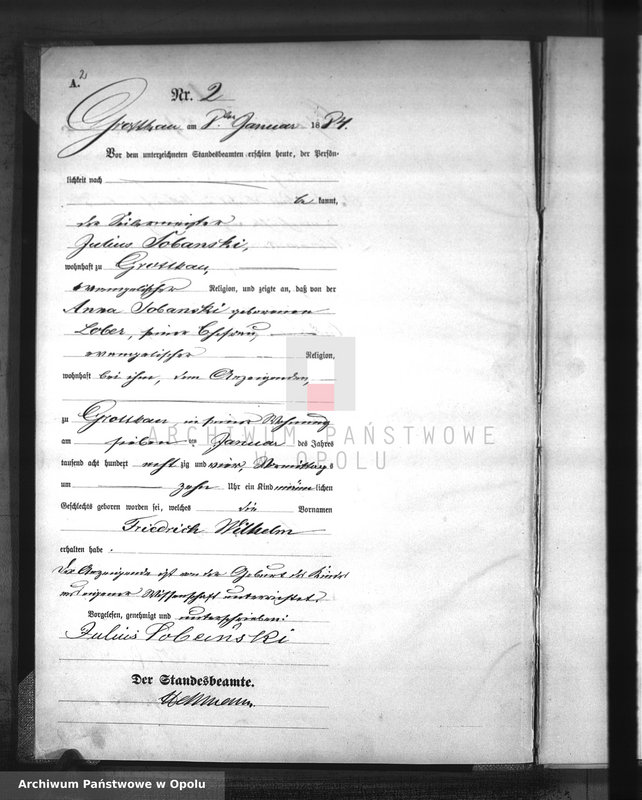 A.
2.
Nr. 2
Grottkau am 8ten Januar 1884.
Vor dem unterzeichneten Standesbeamten erschien heute, der Persön-
lichkeit nach
be kannt,
der Seilermeister
Julius Sobanski,
wohnhaft zu Grottkau
evangelischer Religion, und zeigte an, daß von der
Anna Sobanski geborenen
Lober, seiner Ehefrau,
evangelischer Religion,
wohnhaft bei ihm, dem Anzeigenden,
zu Grottkau in seiner Wohnung
am sieben ten Januar des Jahres
tausend acht hundert acht zig und vier, Vormittags
um zehn Uhr ein Kind männlichen
Geschlechts geboren worden sei, welches die Vornamen
Friedrich Wilhelm
erhalten habe.
Der Anzeigende ist von der Geburt des Kindes
aus eigener Wissenschaft unterrichtet.
Vorgelesen, genehmigt und unterschrieben:
Julius Sobanski
Der Standesbeamte.
ARCHIWUM PAŃSTWOWE
W OPOLU
Archiwum Państwowe w Opolu